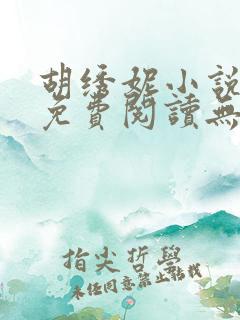 胡绣妮小說
免費閱讀無
指尖哲學
未经同意禁止转载